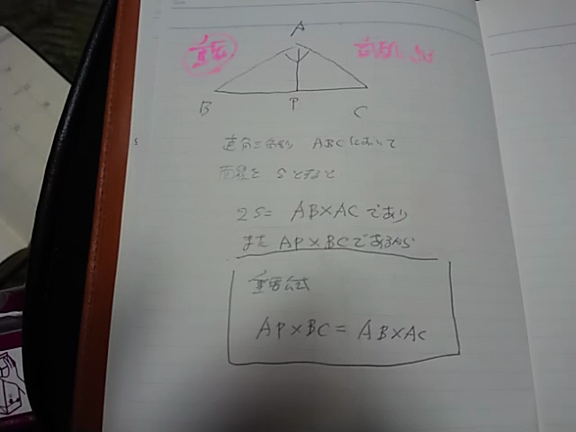 重要
A
B P C
直角三角形 ABCにおいて
面積を Sとすると
2S= AB×ACであり
また AP×BCであるから
重要公式
AP×BC = AB×AC